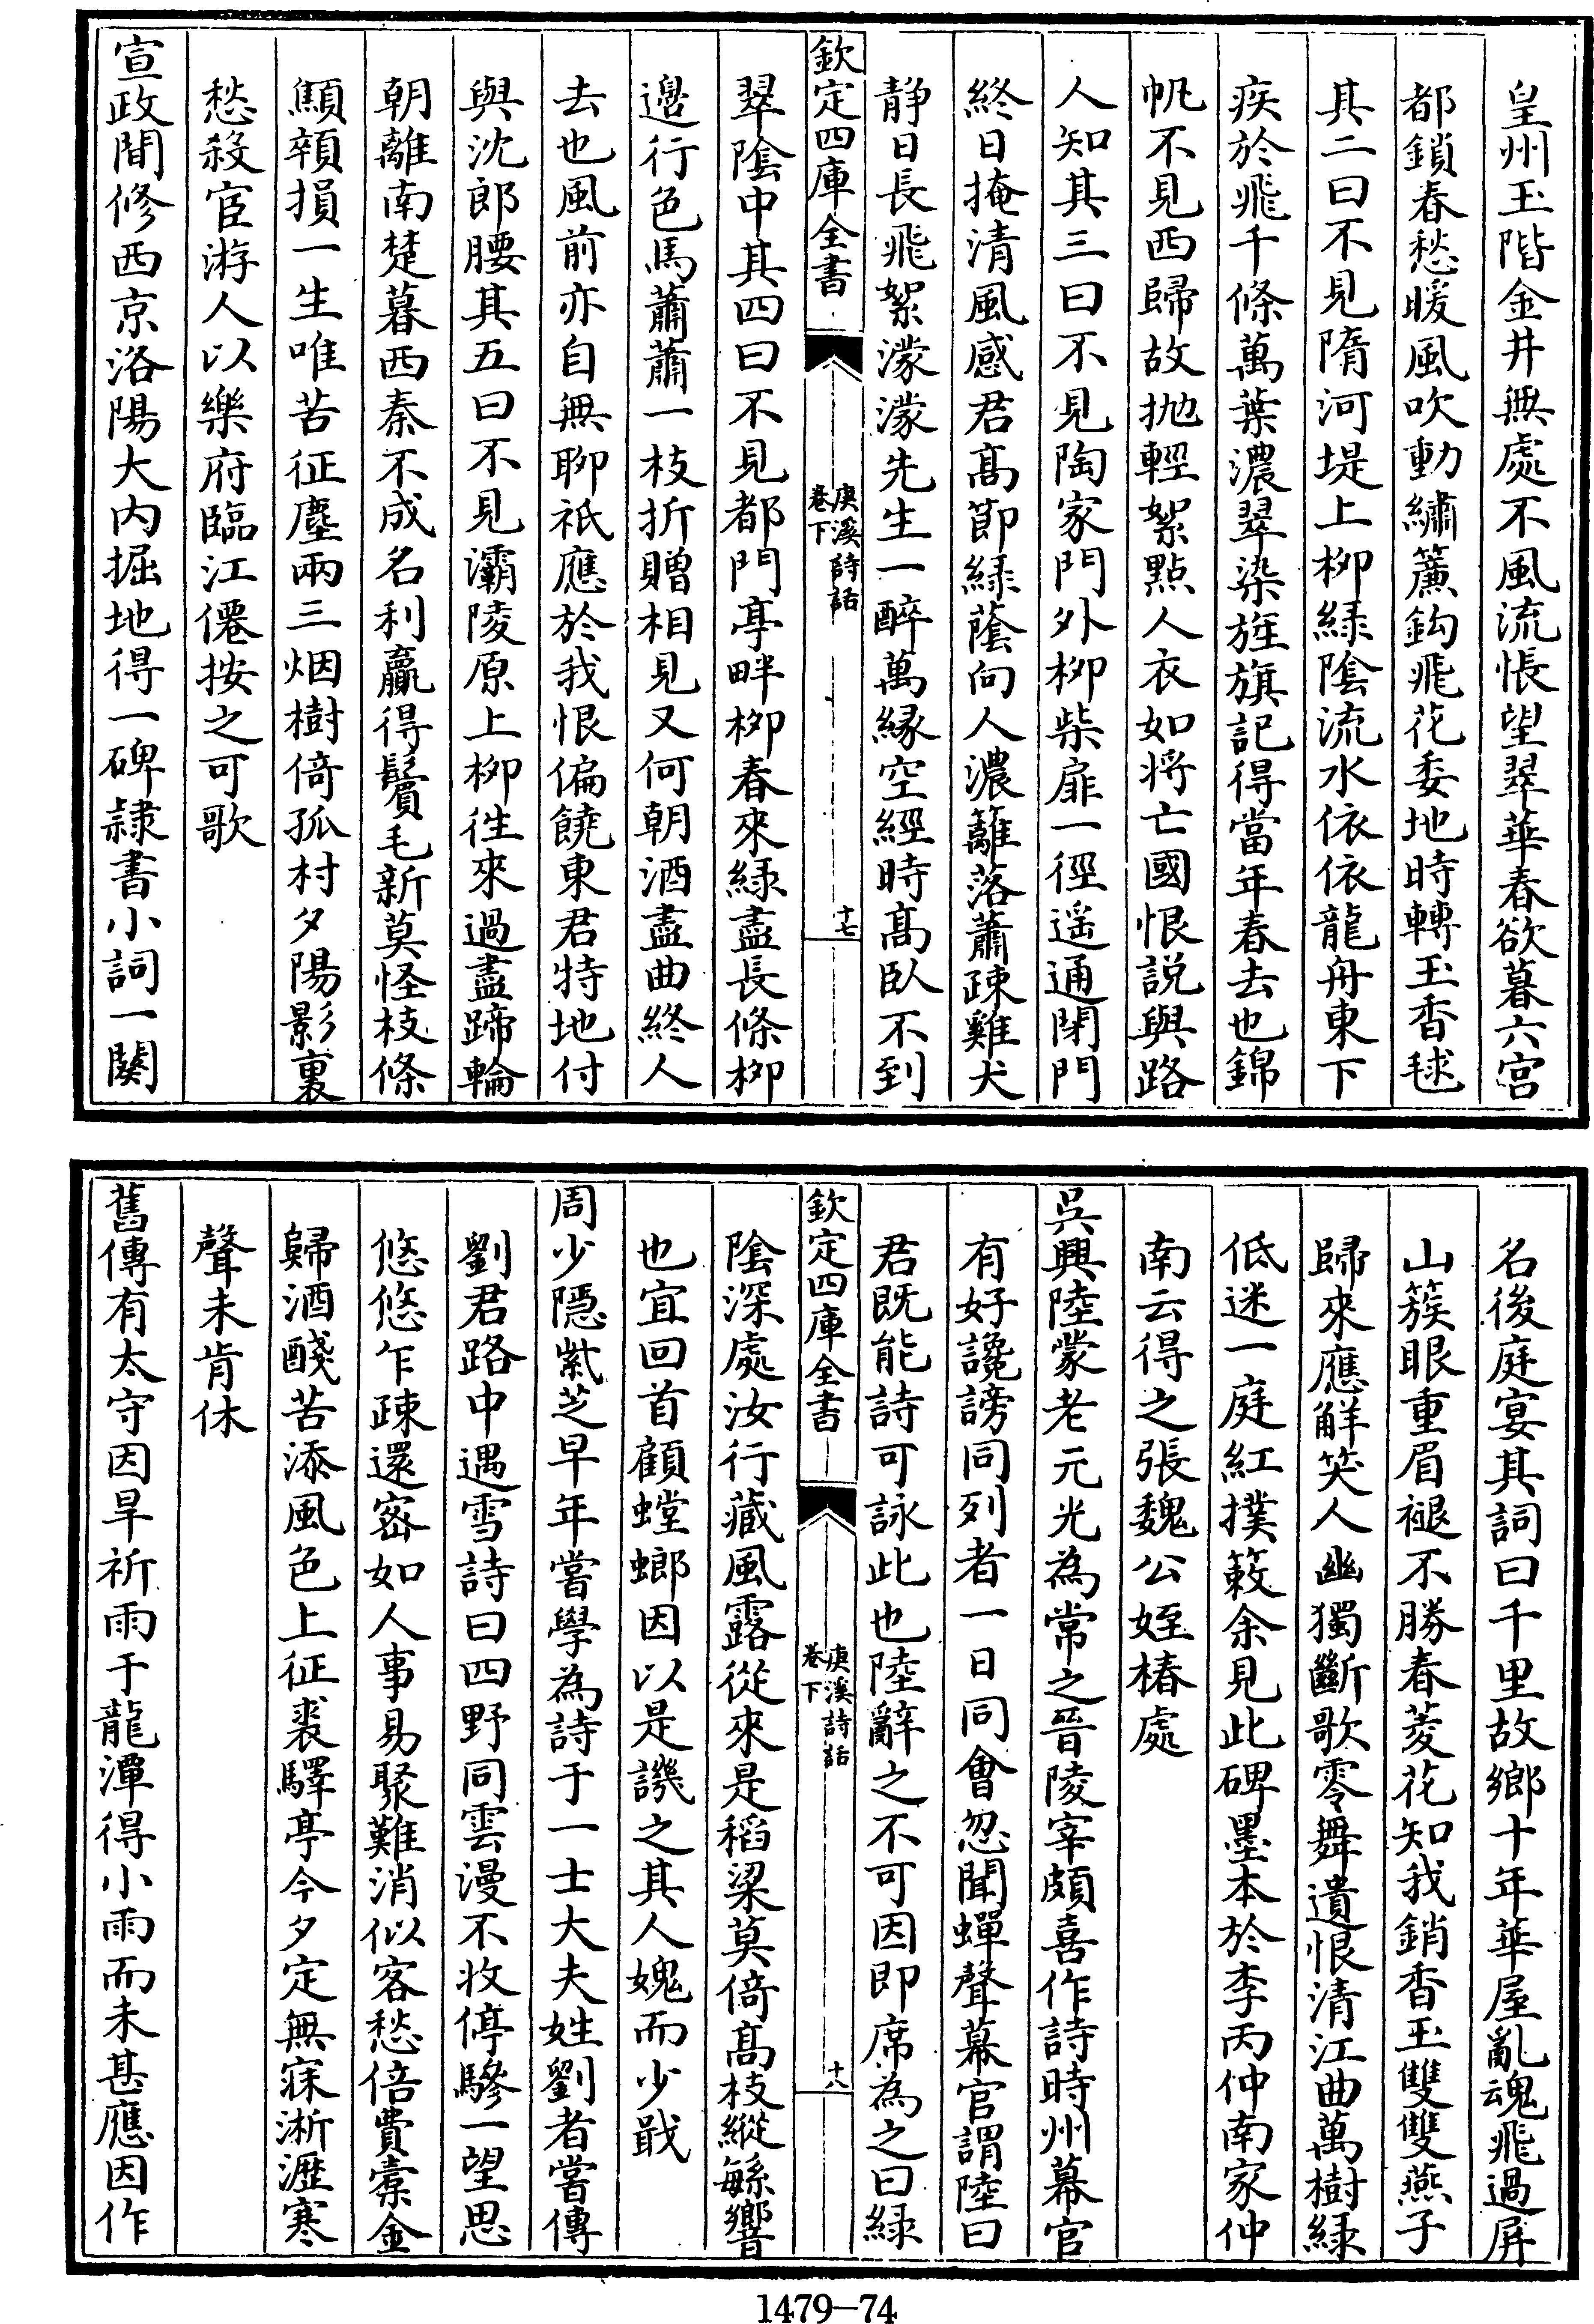 皇州玉階金井無處不風流悵望翠華春欲暮六宮
都鎖春愁暖風吹動繡簾鈎飛花委地時轉玉香毬
其二曰不見隋河堤上柳緑隂流水依依龍舟東下
疾於飛千條萬葉濃翠染旌旗記得當年春去也錦
帆不見西歸故抛輕絮點人衣如將亡國恨説與路
人知其三曰不見陶家門外柳柴扉一徑遥通閉門
終日掩清風感君髙節緑蔭向人濃籬落蕭踈雞犬
静日長飛絮濛濛先生一醉萬縁空經時髙臥不到
欽定四庫全書
庚溪詩話
卷下
十七
翠隂中其四曰不見都門亭畔柳春來緑盡長條柳
邉行色馬蕭蕭一枝折贈相見又何朝酒盡曲終人
去也風前亦自無聊祇應於我恨偏饒東君特地付
與沈郎腰其五曰不見灞陵原上柳徃來過盡蹄輪
朝離南楚暮西秦不成名利贏得鬢毛新莫怪枝條
顦顇損一生唯苦征塵兩三烟樹倚孤村夕陽影裏
愁殺宦游人以樂府臨江僊按之可歌
宣政間修西京洛陽大内掘地得一碑隷書小詞一闋
名後庭宴其詞曰千里故鄉十年華屋亂魂飛過屏
山簇眼重眉褪不勝春菱花知我銷香玉雙雙燕子
歸來應解笑人幽獨斷歌零舞遺恨清江曲萬樹緑
低迷一庭紅撲簌余見此碑墨本於李丙仲南家仲
南云得之張魏公姪椿處
吳興陸蒙老元光為常之晉陵宰頗喜作詩時州幕官
有好讒謗同列者一日同會忽聞蟬聲幕官謂陸曰
君既能詩可詠此也陸辭之不可因即席為之曰緑
欽定四庫全書
庚溪詩話
卷下
十八
隂深處汝行藏風露從來是稻粱莫倚髙枝縱繁響
也宜回首顧螳螂因以是譏之其人媿而少戢
周少隠紫芝早年嘗學為詩于一士大夫姓劉者嘗傳
劉君路中遇雪詩曰四野同雲漫不收停驂一望思
悠悠乍踈還宻如人事易聚難消似客愁倍費橐金
歸酒醆苦添風色上征裘驛亭今夕定無寐淅瀝寒
聲未肯休
舊傳有太守因旱祈雨于龍潭得小雨而未甚應因作
1479-74